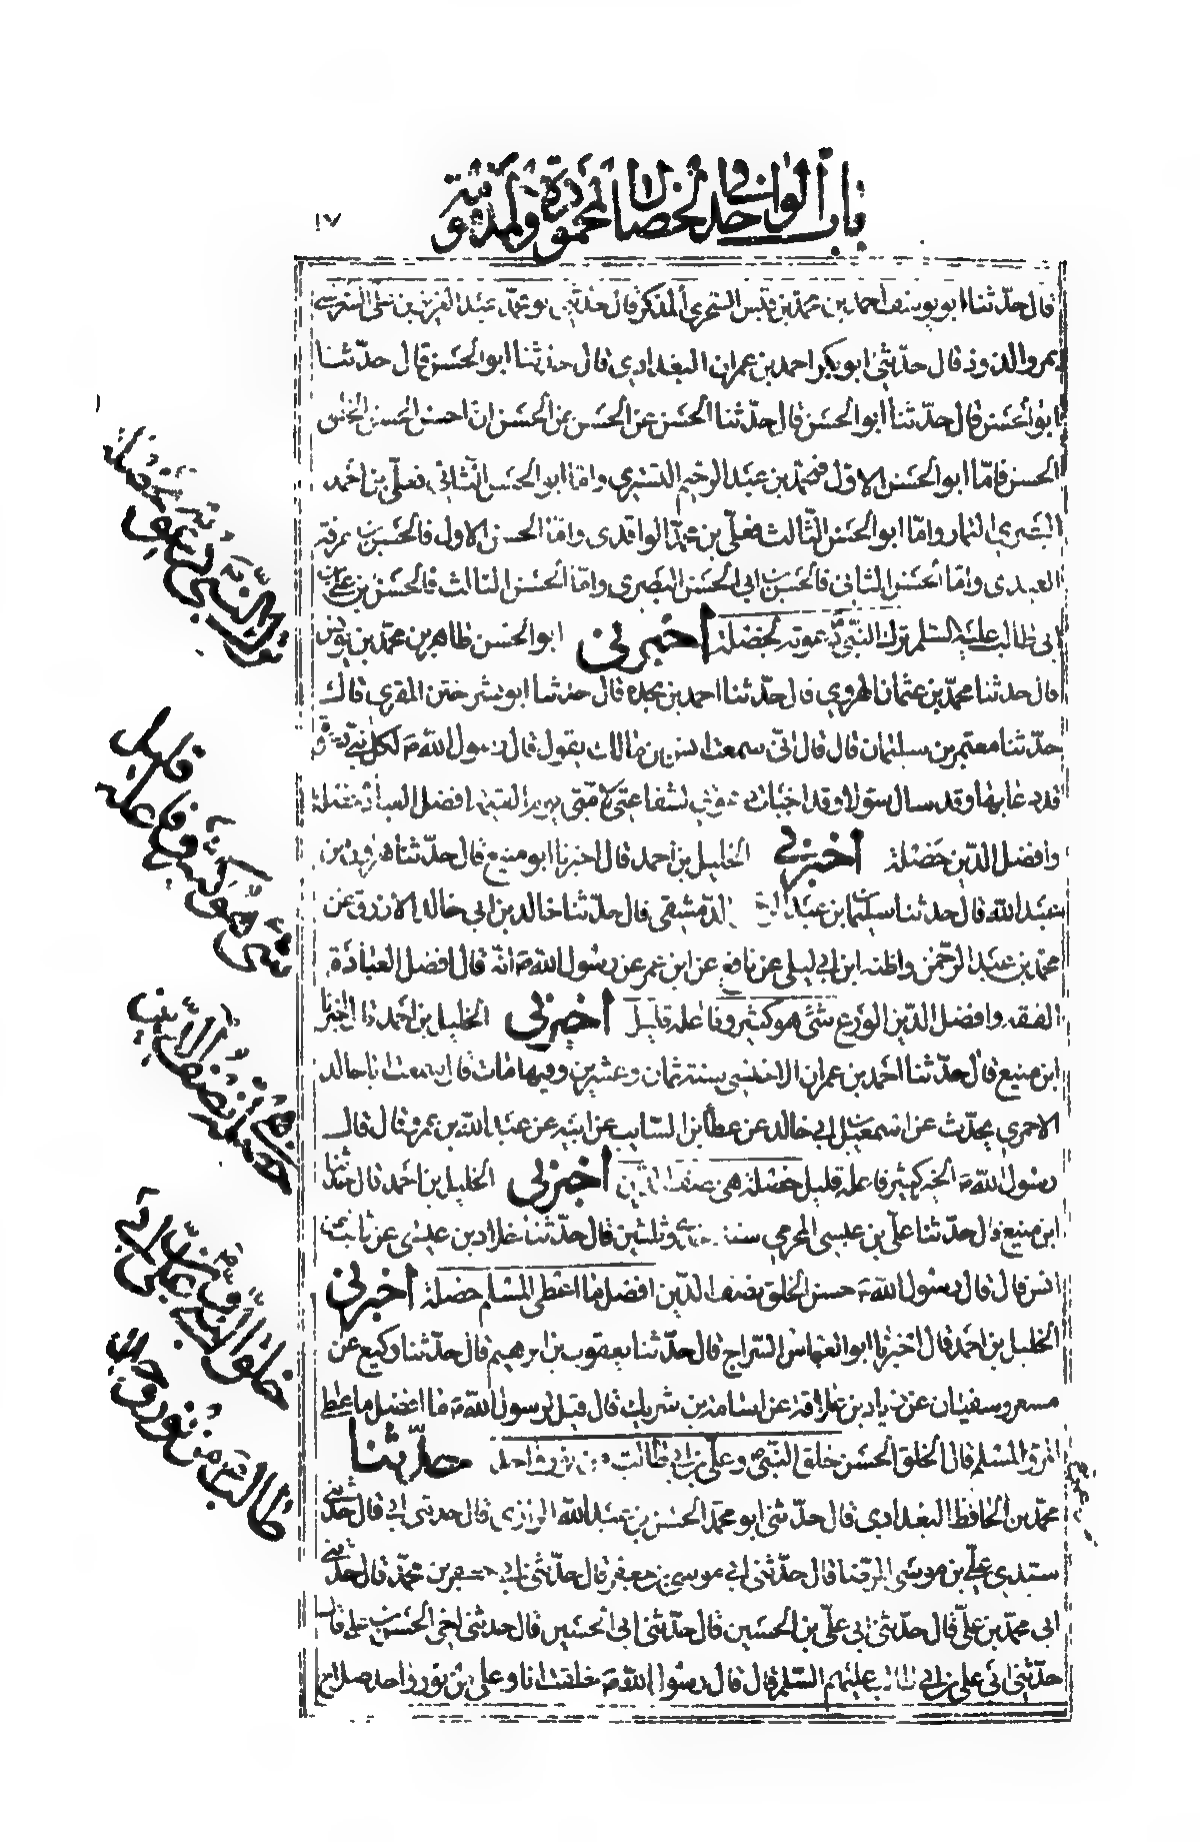 باب الواحد في الخصال المحمودة والمذمومة
١٧
قال حدّثنا ابو يوسف احمد بن محمّد بن قيس السجزي المذكر قال حدثني ابو محمّد عبد العزيز بن علي السرخسي
بمرو الروذ قال حدّثني ابو بكر احمد بن عمران البغدادي قال حدثنا ابو الحسن قال حدّثنا
ابو الحسن قال حدّثنا ابو الحسن قال حدّثنا الحسن عن الحسن عن الحسن ان احسن الحسن الخلق
الحسن فامّا ابو الحسن الاول فمحمّد بن عبد الرحيم التستري وامّا ابو الحسن الثاني فعلّي بن احمد
البصري التمار وامّا ابو الحسن الثالث فعلّي بن محمّد الواقدي وامّا الحسن الاول فالحسن بن عرفة
العبدي وامّا الحسن الثاني فالحسن بن ابي الحسن البصري وامّا الحسن الثالث فالحسن بن علي بن
ابي طالب عليه السلم ترك النّبيّ دعوته لخصلة اخبرني ابو الحسن طاهر بن محمّد بن يونس
قال حدثنا محمّد بن عثمان الهروي قال حدّثنا احمد بن نجدة قال حدثنا ابو بشر ختن المقري قال
حدّثنا معتمر بن سليمان قال قال ابي سمعت انس بن مالك يقول قال رسول اللّه ص لكل نبيّ دعوة
قد دعا بها وقد سال سؤلا وقد اخبات دعوتي لشفاعتي لامّتي يوم القيمة افضل العبادة خصلة
وافضل الدّين خصلة اخبرني الخليل بن احمد قال اخبرنا ابو منيع قال حدّثنا هرون بن
عبد اللّه قال حدثنا سليمان بن عبد الدّمشقي قال حدّثنا خالد بن ابي خالد الازرق عن
محمّد بن عبد الرّحمن واظنه ابن ابي ليلى عن نافع عن ابن عمر عن رسول اللّه ص انّه قال افضل العبادة
الفقه وافضل الدّين الورع شئ هو كثير وفاعله قليل اخبرني الخليل بن احمد قال اخبرنا
ابن منيع قال حدّثنا احمد بن عمران الاخنسي سنة ثمان وعشرين وفيها مات قال سمعت ابا خالد
الاحمر يحدّث عن اسمعيل بن ابي خالد عن عطا بن السّايب عن ابيه عن عبد اللّه بن عمرو قال قال
رسول اللّه ص الخير كثير وفاعله قليل خصلة هي نصف الدّين اخبرني الخليل بن احمد قال حدّثنا
ابن منيع قال حدّثنا علّي بن عيسى المخرمي سنة وثلثين قال حدّثنا خلاد بن عيسى عن ثابت عن
انس قال قال رسول اللّه ص حسن الخلق نصف الدّين افضل ما اعطى المسلم خصلة اخبرني
الخليل بن احمد قال اخبرنا ابو العباس السّراج قال حدّثنا يعقوب بن ابرهيم قال حدّثنا وكيع عن
مسعر وسفيان عن زياد بن علاقة عن اسامة بن شريك قال قيل لرسول اللّه ص ما افضل ما اعطى
المرؤ المسلم قال الخلق الحسن خلق النبّي ص وعلّي بن ابي طالب من نور واحد حدّثنا
محمّد بن الحافظ البغدادي قال حدّثني ابو محمّد الحسن بن عبد اللّه الرازي قال حدثني ابي قال حدّثني
سيّدي علّي بن موسى الرضا قال حدّثني ابي موسى بن جعفر قال حدّثني ابي جعفر بن محمّد قال حدّثني
ابي محمّد بن علّي قال حدّثني ابي علّي بن الحسين قال حدّثني ابي الحسين قال حدثني اخي الحسن بن علي قال
حدّثني ابي علي بن ابي طالب عليهم السّلم قال قال رسول اللّه ص خلقت انا وعلي من نور واحد
ترك النّبيّ دعوته لخصلة
شئ هو كثير وفاعله قليل
خصلة هي نصف الدّين
خلق النبي ص وعلي بن ابي
طالب من نور واحد